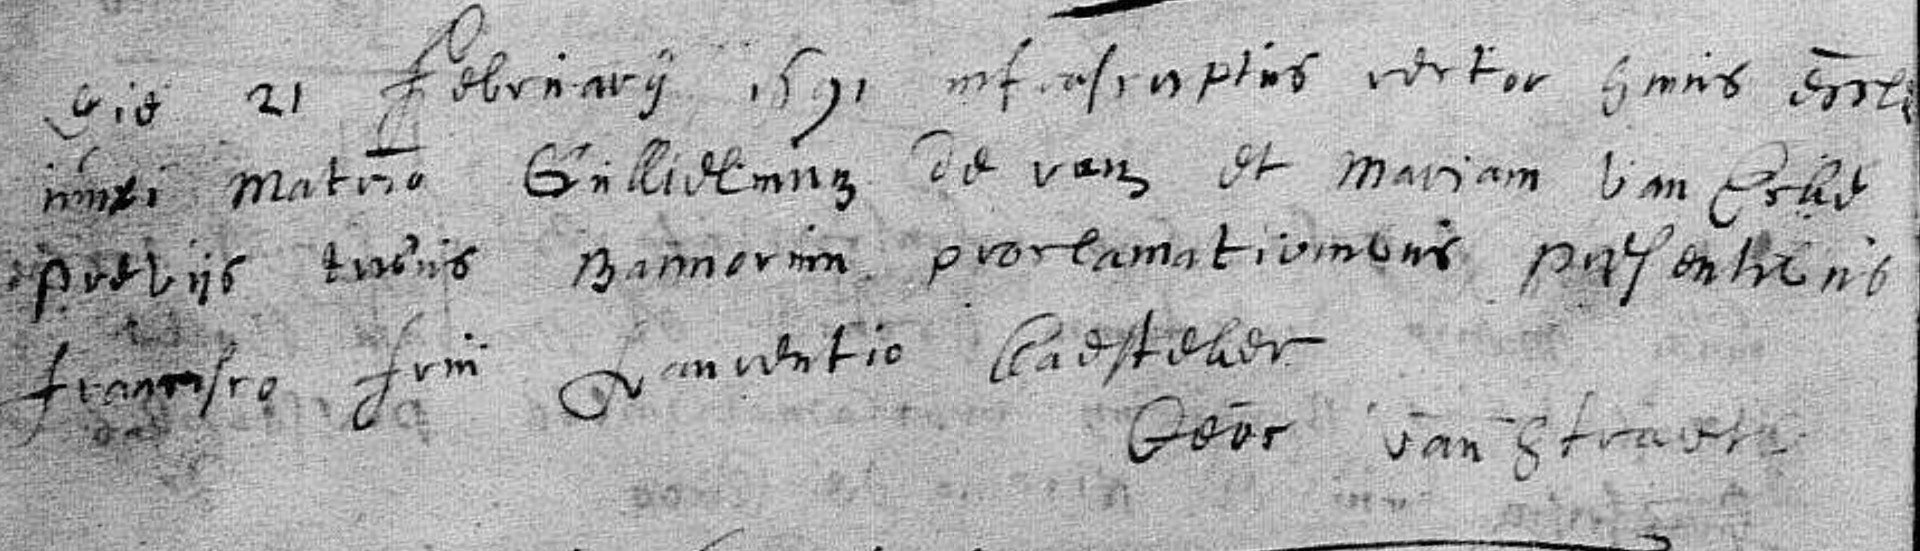 Die 21 februarij 1591 infrascriptus rector huius eccle
iunxi matrio Guillielmum de van et Mariam van
previjs tribus Bannorum proclamationibus presentibus
francisco frin Laurentio Casteleer
Geor van Straeten